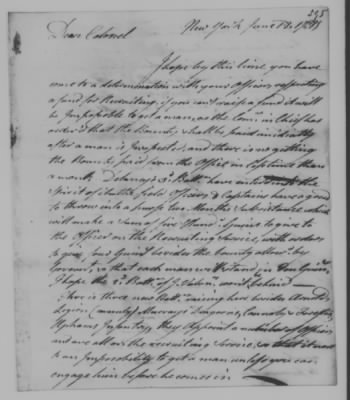 395
New York June 13. 1781
Dear Colonel
I hope by this time you have
come to a determination with your Officers respecting
a fund for Recruiting, if you can't raise a fund it will
be Impossible to get a man, as the Comr. in Chief has
order'd that the Bounty shall be paid immediately
after a man is Inspected, and there is no getting
the Bounty paid from the Office in less time than
a month. Delancey's 3d. Batt. have enter'd into this
Spirit of it, all the Field Officers & Captains have agreed
to throw into a purse two Months Subsistance which
will make a Sum of five Hund. Guineas to give to
the Officer on the Recruiting Service, with orders
to give Guineas besides the bounty allow'd by
Goverm't, so that each man will stand in Ten Guineas,
I hope the 3d. Batt. of J. Volun. won't be behind
There is three new Batt. raising here besides Arnold's
Legion (namely) Murray's Dragoons,
Orphans Infantry, they Appoint a number of Officers
and are all on the Recruiting Service, so that it will
be an Impossibility to get a man unless you can
engage him before he comes in